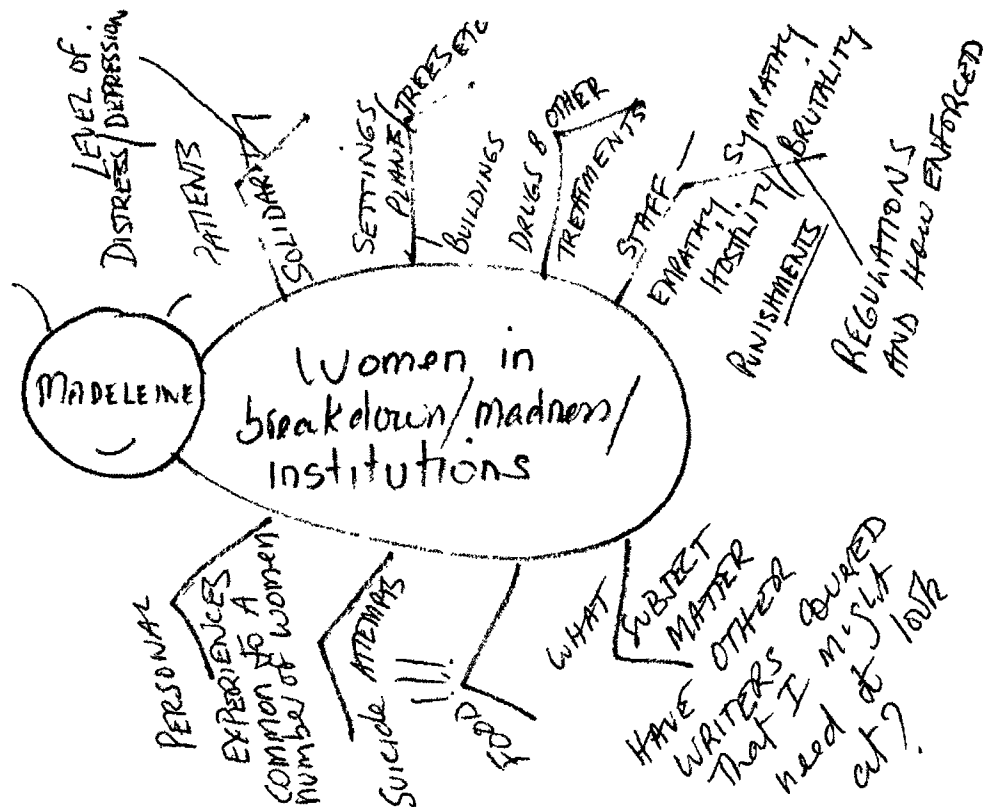 MADELEINE
Women in
breakdown/madness/
institutions
LEVEL OF
DISTRESS/DEPRESSION
PATIENTS
SOLIDARITY
SETTINGS
PLANTS/TREES ETC
BUILDINGS
DRUGS & OTHER
TREATMENTS
STAFF
EMPATHY, SYMPATHY
HOSTILITY/BRUTALITY
PUNISHMENTS
REGULATIONS
AND HOW ENFORCED
PERSONAL
EXPERIENCES
COMMON TO A
number of women
Suicide ATTEMPTS
FOOD !!!
WHAT
SUBJECT
MATTER
HAVE OTHER
WRITERS COVERED
That I might
need to look
at?